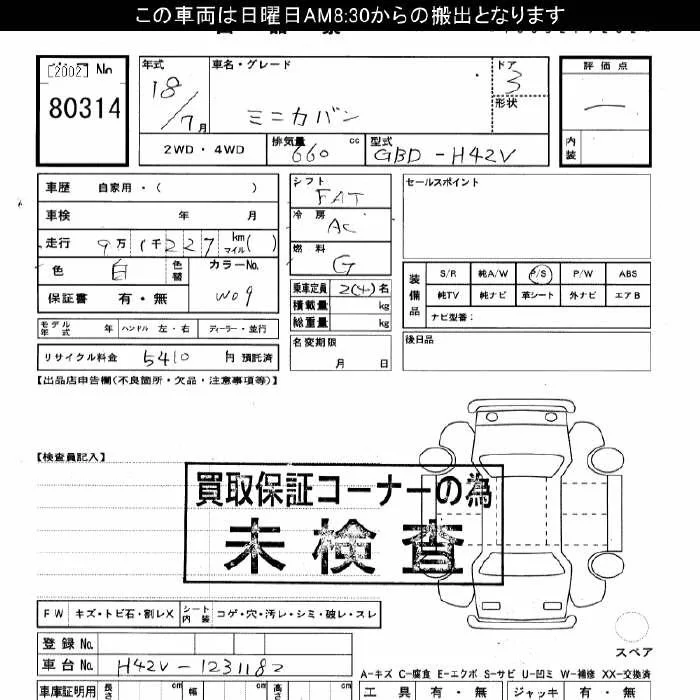 この車両は日曜日AM8:30からの搬出となります
[2002] No
80314
年式 車名・グレード ドア 評価点
18/7月 ミニカバン 3 形状 一
2WD・4WD 排気量 660 cc 型式 GBD-H42V 内装
車歴 自家用・( )
車検 年 月
走行 9万1千227 km マイル( )
色 白 色替 カラーNo. W09
保証書 有・無
モデル年式 年 ハンドル 左・右 ディーラー・並行
リサイクル料金 5410 円 預託済
シフト FAT
冷房 AC
燃料 G
乗車定員 2(4)名
積載量 kg
総重量 kg
名変期限 月 日
セールスポイント
装備品 S/R 純A/W P/S P/W ABS
純TV 純ナビ 革シート 外ナビ エアB
ナビ型番:
後日品
【出品店申告欄(不良箇所・欠品・注意事項等)】
【検査員記入】
買取保証コーナーの為
未検査
FW キズ・トビ石・割レX シート内装 コゲ・穴・汚レ・シミ・破レ・スレ
登録No.
車台No. H42V-1231182
車庫証明用 長さ cm 幅 cm 高さ cm
スペア
A-キズ C-腐食 E-エクボ S-サビ U-凹ミ W-補修 XX-交換済
工具 有・無 ジャッキ 有・無